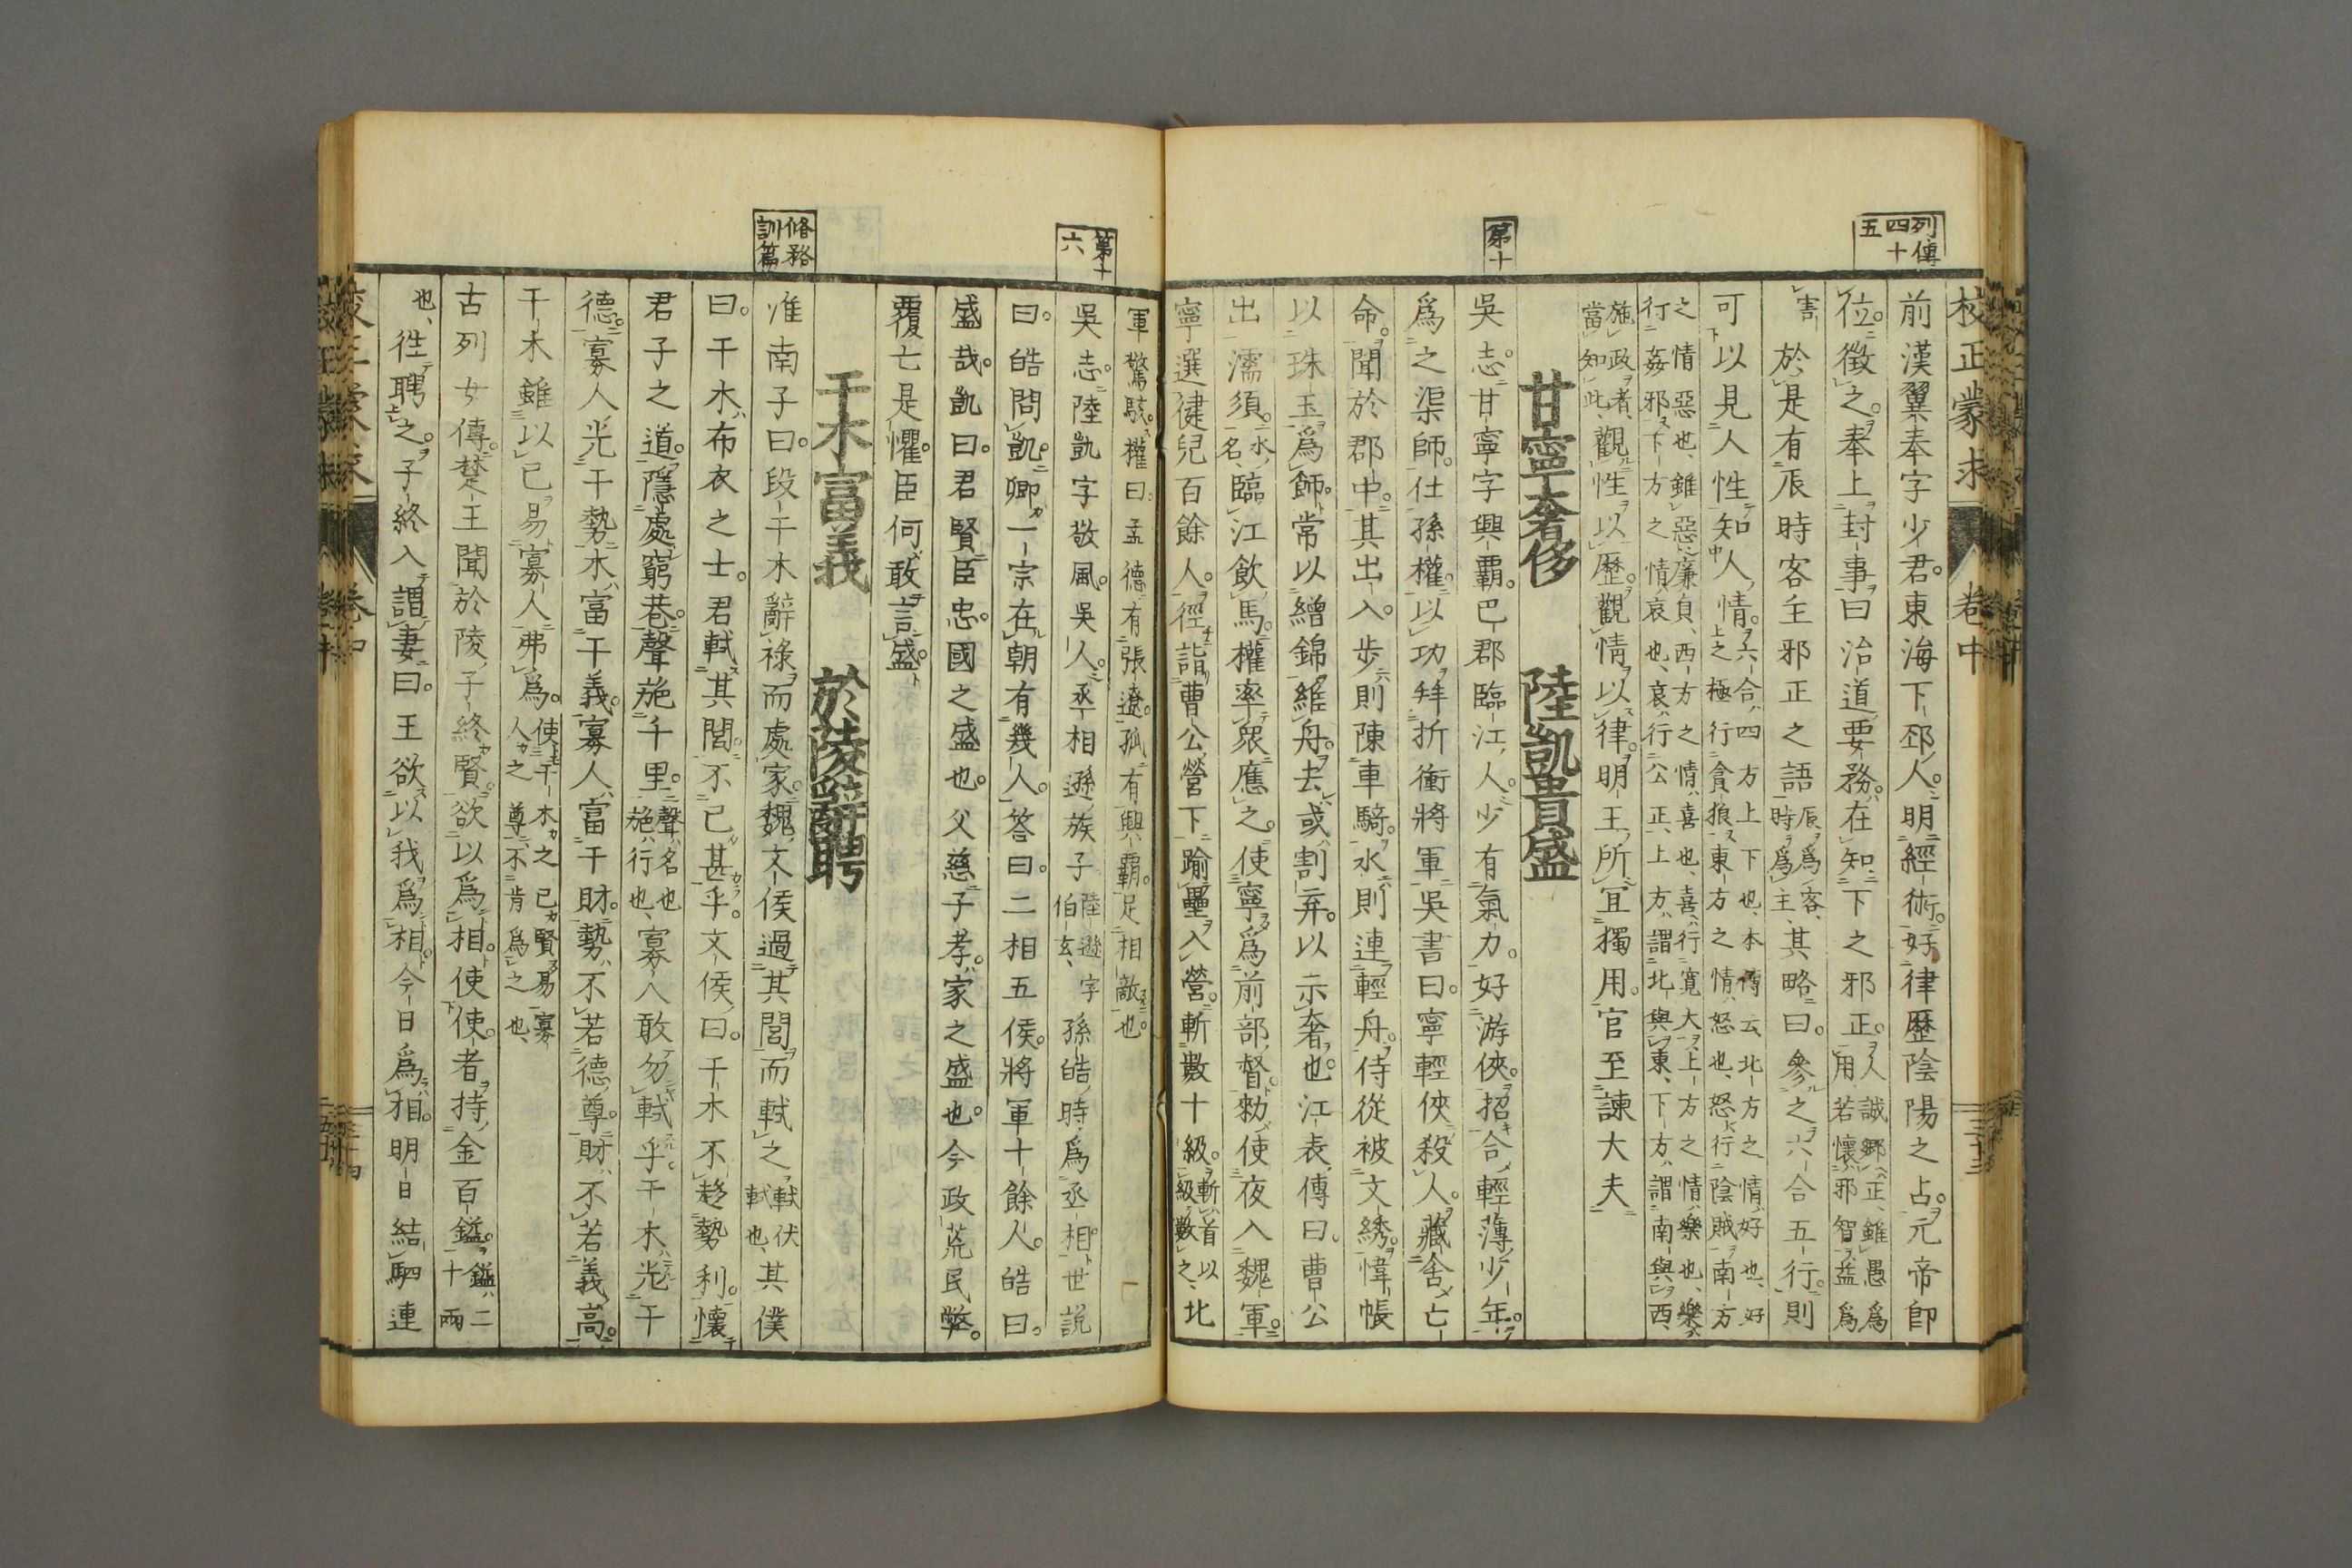 校正蒙求 卷中 三十三
列傳四十五
前漢翼奉字少君。東海下邳人。明經術。好律歷陰陽之占。元帝卽
位。徵之。奉上封事曰治道要務。在知下之邪正。人誠鄉正、雖愚爲用、若懷邪智益爲
害
於是有辰時客主邪正之語辰爲客、時爲主、其略曰。參之六合五行。則
可以見人性知人情。六合、四方上下也、本傳云、北方之情好也、好行貪狼、東方之情、怒也、怒行陰賊、南方
之情惡也、雖惡行廉貞、西方之情、喜也、喜行寬大、上方之情、樂也、樂行姦邪、下方之情、哀也、哀行公正、上方、謂北與東、下方、謂南與西、
施政者、當知此、觀性以歷。觀情以律。明王所宜獨用。官至諫大夫
甘寧奢侈 陸凱貴盛
第十
吳志。甘寧字興霸。巴郡臨江人。少有氣力。好游俠。招合輕薄少年。
爲之渠師。仕孫權。以功拜折衝將軍吳書曰。寧輕俠殺人。藏舍亡
命。聞於郡中。其出入。步則陳車騎。水則連輕舟。侍從被文綉。幃帳
以珠玉爲飾。常以繒錦維舟。去或割弃。以示奢也。江表傳曰。曹公
出濡須。水名、臨江飮馬。權率衆應之。使寧爲前部督。勑使夜入魏軍。
寧選健兒百餘人。徑詣曹公營下踰壘入營。斬數十級。斬首以級數之、北
軍驚駭。權曰。孟德有張遼。孤有興霸。足相敵也。
第十六
吳志。陸凱字敬風。吳人。丞相遜族子陸遜字伯玄、孫皓時爲丞相。世說
曰。皓問凱。卿一宗在朝有幾人。答曰。二相五侯。將軍十餘人。皓曰。
盛哉。凱曰。君賢臣忠。國之盛也。父慈子孝。家之盛也。今政荒民弊。
覆亡是懼。臣何敢言盛。
干木富義 於陵辭聘
脩務訓篇
淮南子曰。段干木辭祿而處家。魏文侯過其閭而軾之軾伏軾也、其僕
曰。干木布衣之士。君軾其閭。不已甚乎。文侯曰。干木不趍勢利。懷
君子之道。隱處窮巷。聲施千里。聲、名也施、行也、寡人敢勿軾乎。干木光干
德。寡人光干勢。木富干義。寡人富干財。勢不若德尊。財不若義高。
干木雖以已易寡人弗爲。使干木之已賢易寡人之尊不肯爲之也、
古列女傳。楚王聞於陵子終賢。欲以爲相。使使者持金百鎰。鎰、二十兩
也、往聘之。子終入謂妻曰。王欲以我爲相。今日爲相。明日結駟連